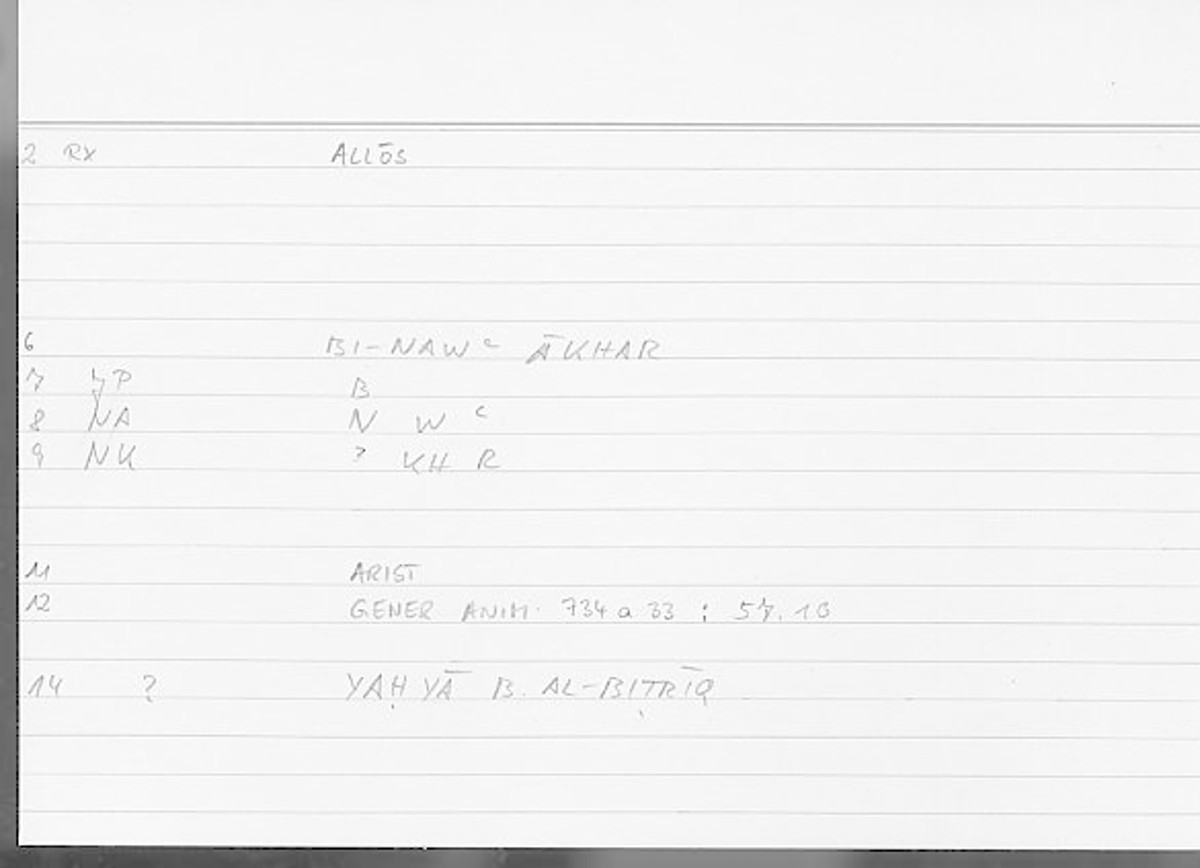 2 RX ALLŌS
6 BI-NAWᶜ ĀKHAR
7 YP B
8 NA N W ᶜ
9 NK ʾ KH R
11 ARIST
12 GENER ANIM. 734 a 33 : 57.10
14 ? YAḤYĀ B. AL-BIṬRĪQ